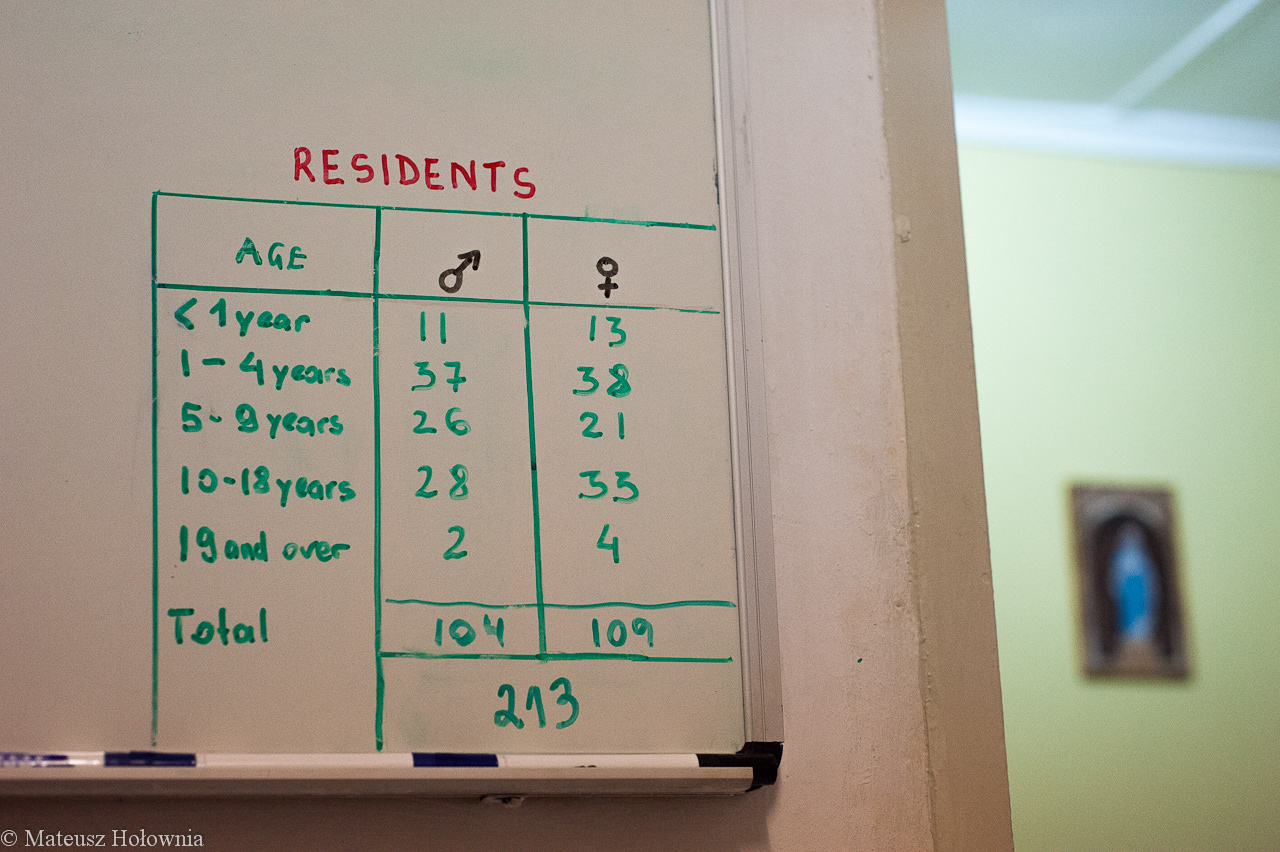 RESIDENTS
AGE ♂ ♀
< 1 year 11 13
1 - 4 years 37 38
5 - 9 years 26 21
10 - 18 years 28 33
19 and over 2 4
Total 104 109
213
© Mateusz Hołownia